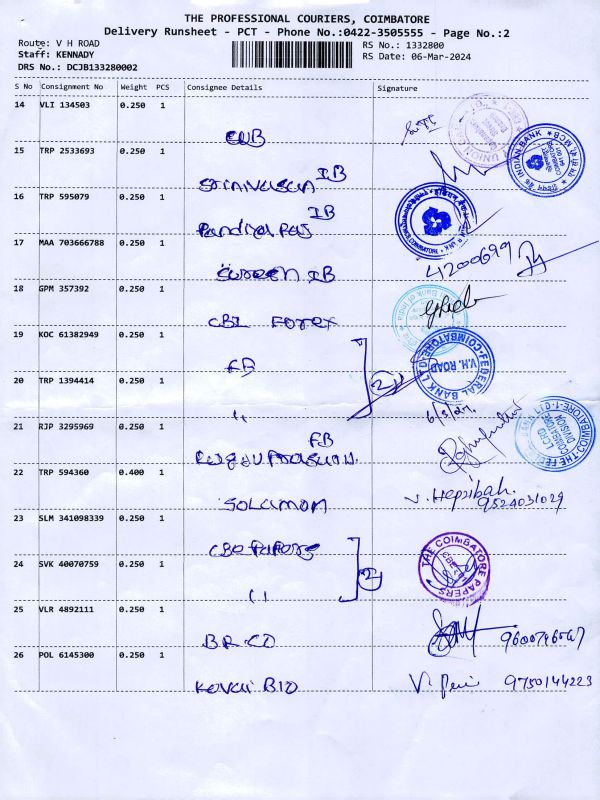 THE PROFESSIONAL COURIERS, COIMBATORE
Delivery Runsheet - PCT - Phone No.:0422-3505555 - Page No.:2
Route: V H ROAD
Staff: KENNADY
DRS No.: DCJB133280002
RS No.: 1332800
RS Date: 06-Mar-2024
S No Consignment No Weight PCS Consignee Details Signature
14 VLI 134503 0.250 1 CUB
15 TRP 2533693 0.250 1 IB
16 TRP 595079 0.250 1 IB
17 MAA 703666788 0.250 1 IB 4200699
18 GPM 357392 0.250 1 CBI FOREX
19 KOC 61382949 0.250 1 FB
20 TRP 1394414 0.250 1 " 2 6/3/24
21 RJP 3295969 0.250 1 FB
22 TRP 594360 0.400 1 SOLAMON V. Hepzibah. 9524031029
23 SLM 341098339 0.250 1
24 SVK 40070759 0.250 1 " 2
25 VLR 4892111 0.250 1
26 POL 6145300 0.250 1 KOVAI BIO 9750144223
INDIAN BANK
V.H. ROAD
FEDERAL BANK
THE COIMBATORE PAPERS